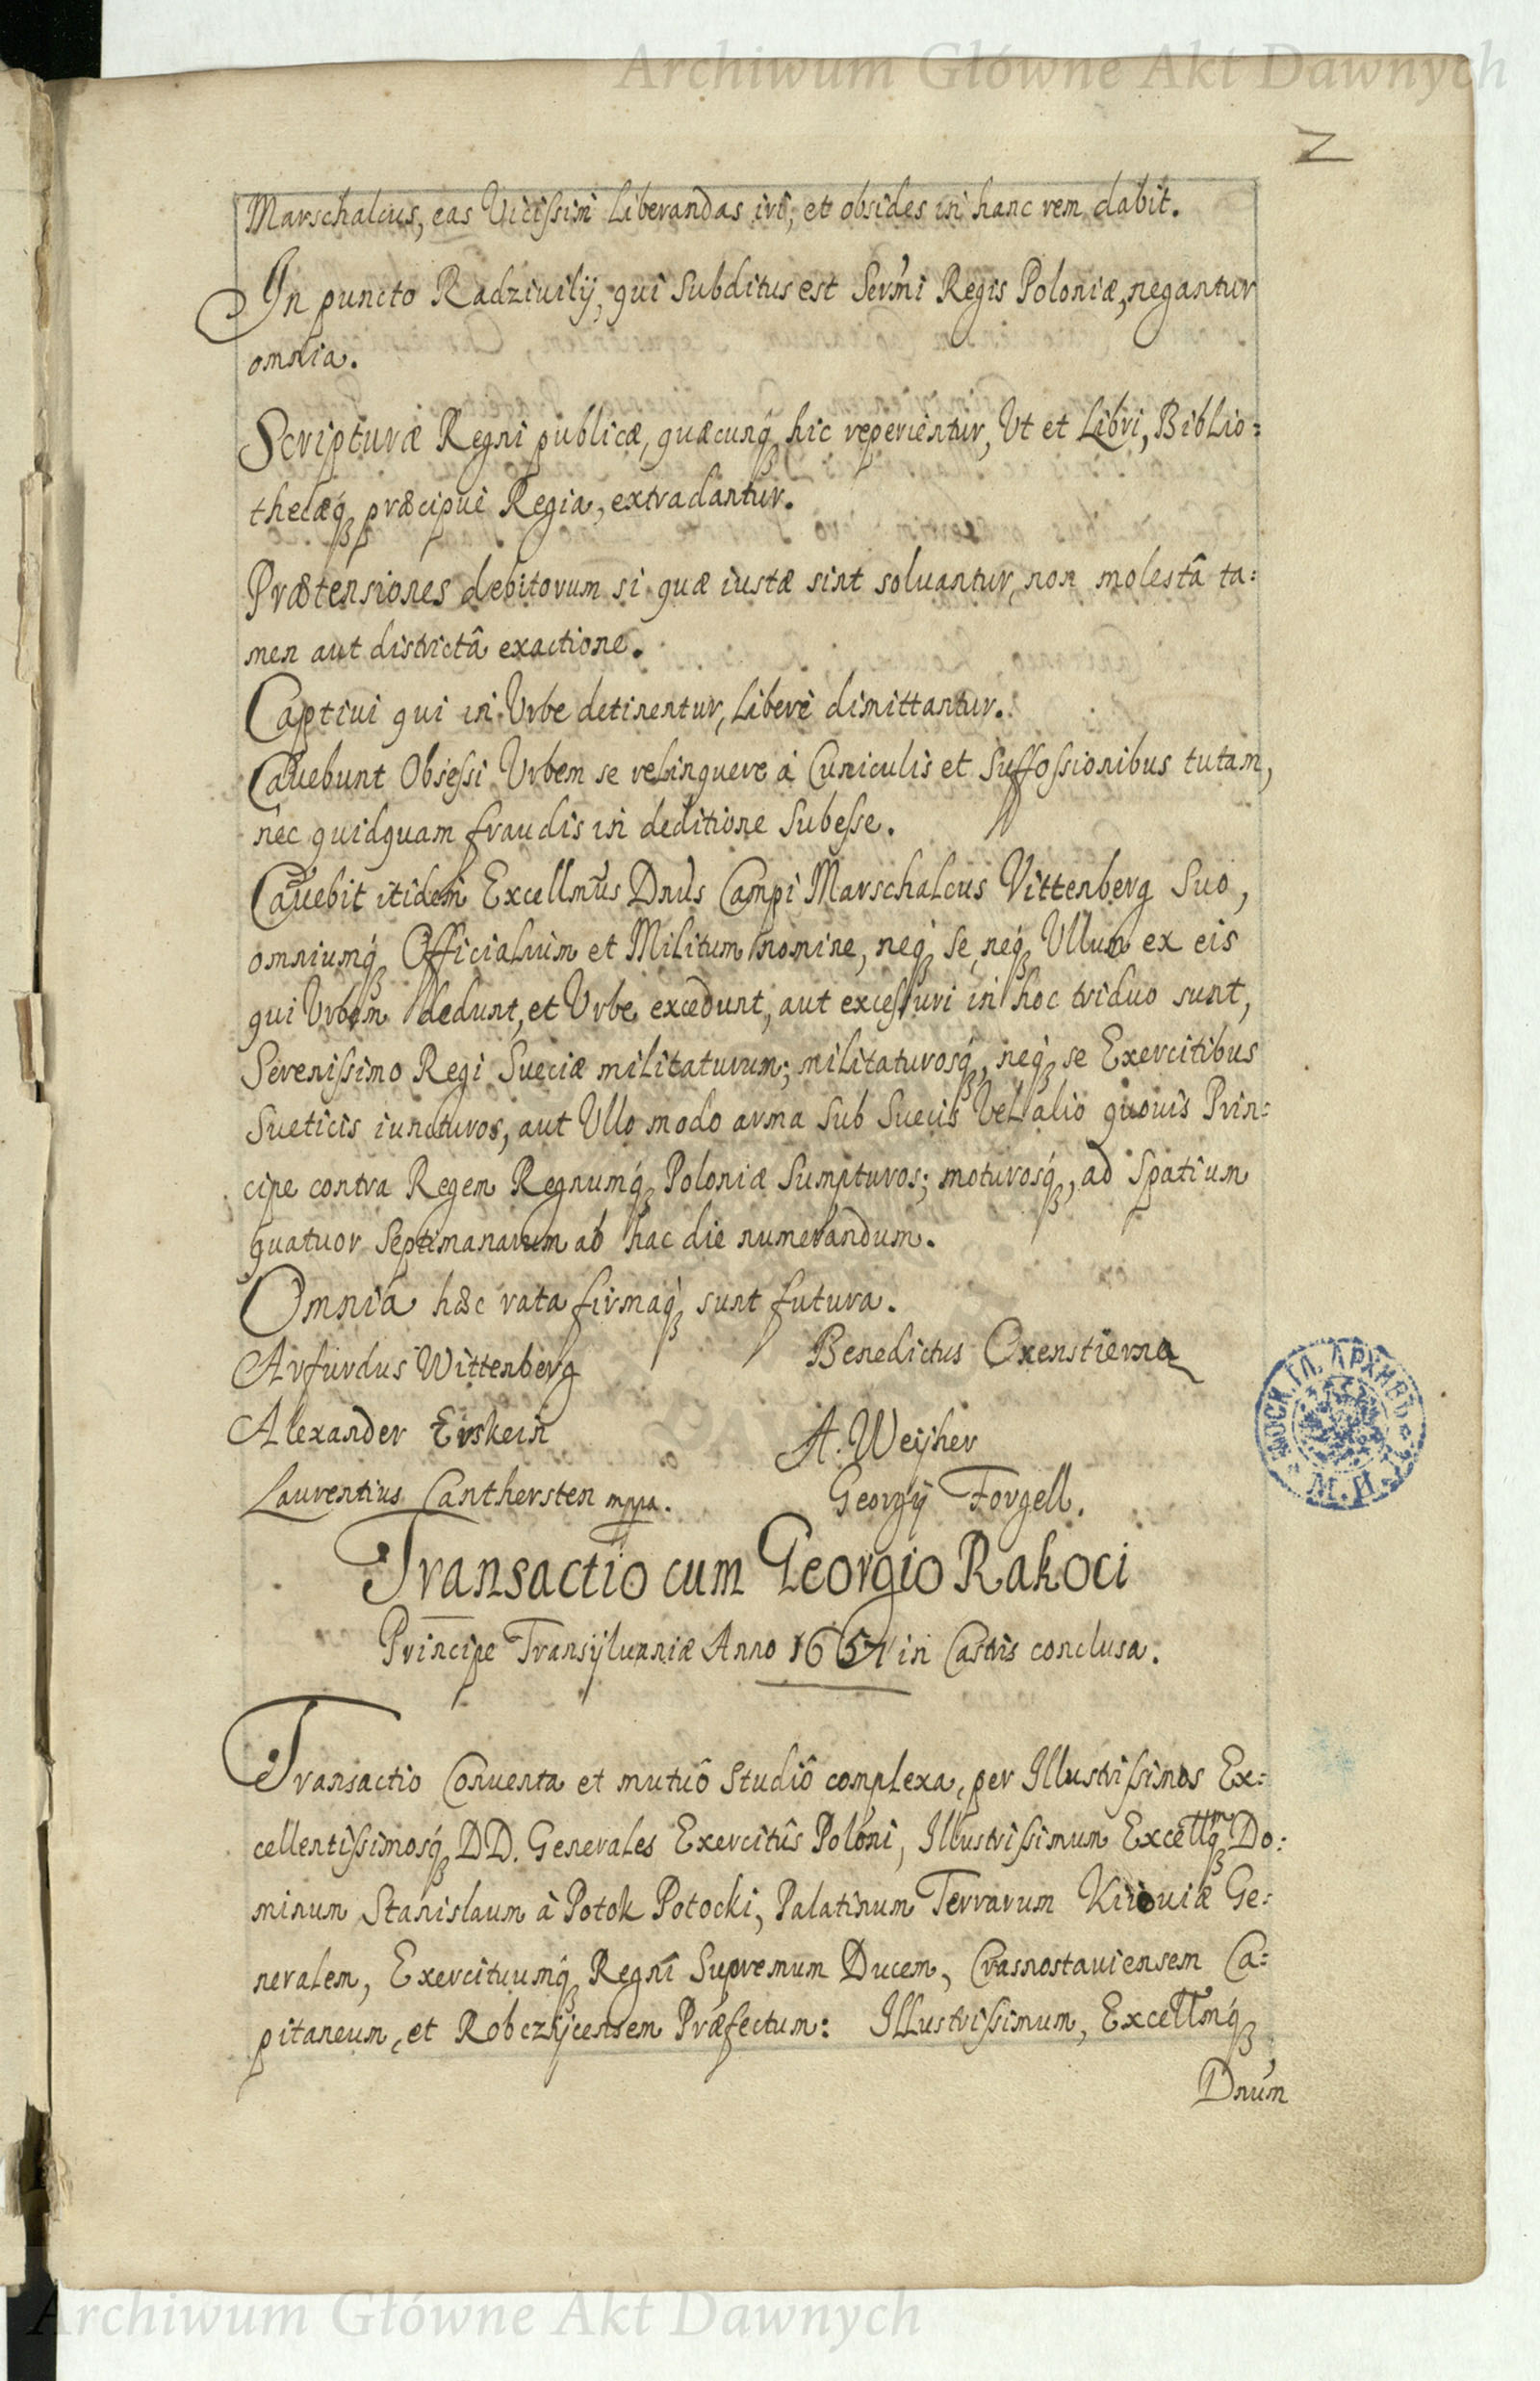 Archiwum Główne Akt Dawnych
2
Marschalcus, eas Vicissim liberandas iri, et obsides in hanc rem dabit.
In puncto Radziuilij, qui Subditus est Sermi Regis Poloniæ, negantur
omnia.
Scripturæ Regni publicæ, quæcunq́ȝ hic reperientur, Ut et Libri, Biblio:
thecæq́ȝ præcipuè Regia, extradantur.
Prætensiones debitorum si quæ iustæ sint soluantur, non molestâ ta:
men aut districtâ exactione.
Captiui qui in Vrbe detinentur, liberè dimittantur.
Cauebunt Obsessi Vrbem se relinquere à Cuniculis et Suffossionibus tutam,
nec quidquam fraudis in deditione Subesse.
Cauebit itidem Excellmus Dnus Campi Marschalcus Vittenberg Suo,
omniumq́ȝ Officialium et Militum nomine, neq́ȝ se, neq́ȝ Ullum ex eis
qui Vrbem dedunt, et Vrbe excedunt, aut excessuri in hoc triduo sunt,
Serenissimo Regi Sueciæ militaturum; militaturosq́ȝ, neq́ȝ se Exercitibus
Sueticis iuncturos, aut Ullo modo arma Sub Suecis Vel alio quouis Prin:
cipe contra Regem Regnumq́ȝ Poloniæ Sumpturos; moturosq́ȝ, ad Spatium
quatuor Septimanarum ab hac die numerandum.
Omnia hæc rata firmaq́ȝ sunt futura.
Arfurdus Wittenberg Benedictus Oxenstierna
Alexander Erskein A. Weÿher
Laurentius Canthersten mppa. Georgÿ Forgell.
Transactio cum Georgio Rakoci
Principe Transÿluaniæ Anno 1657 in Castris conclusa.
Transactio Conuenta et mutuô Studiô complexa, per Illustrissimos Ex:
cellentissimosq́ȝ DD. Generales Exercitûs Poloni, Illustrissimum Excellmq́ȝ Do:
minum Stanislaum à Potok Potocki, Palatinum Terrarum Kiiouiæ Ge:
neralem, Exercituumq́ȝ Regni Supremum Ducem, Crasnostauiensem Ca:
pitaneum, et Robczÿcensem Præfectum: Illustrissimum, Excellmq́ȝ
Dnum
МОСК. ГЛ. АРХИВЪ
М. И. Д.
Archiwum Główne Akt Dawnych